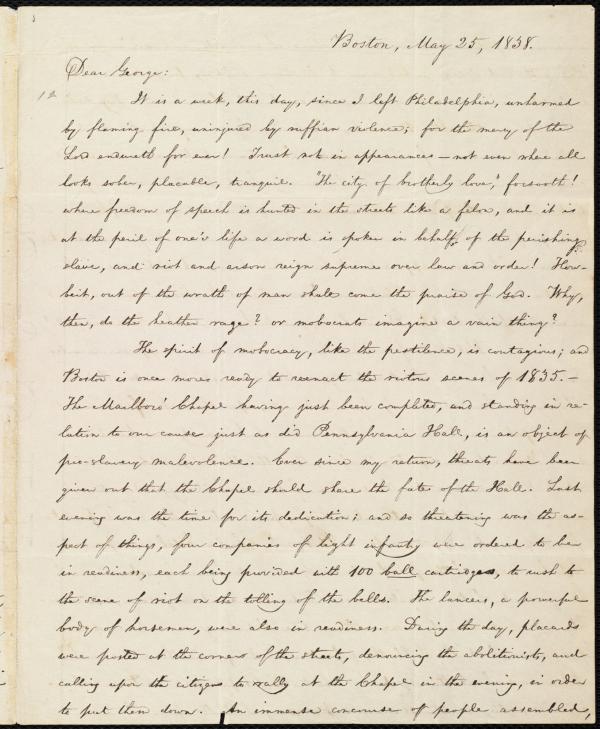 Boston, May 25, 1838.
Dear George:
It is a week, this day, since I left Philadelphia, unharmed
by flaming fire, uninjured by ruffian violence; for the mercy of the
Lord endureth for ever! Trust not in appearances — not even where all
looks sober, placable, tranquil. "The city of brotherly love," forsooth!
where freedom of speech is hunted in the streets like a felon, and it is
at the peril of one's life a word is spoken in behalf of the perishing
slave, and riot and arson reign supreme over law and order! How-
beit, out of the wrath of man shall come the praise of God. Why,
then, do the heathen rage? or mobocrats imagine a vain thing?
The spirit of mobocracy, like the pestilence, is contagious; and
Boston is once more ready to reenact the riotous scenes of 1835.—
The Marlboro' Chapel having just been completed, and standing in re-
lation to our cause just as did Pennsylvania Hall, is an object of
pro-slavery malevolence. Ever since my return, threats have been
given out that the Chapel should share the fate of the Hall. Last
evening was the time for its dedication; and so threatening was the as-
pect of things, four companies of light infantry were ordered to be
in readiness, each being provided with 100 ball cartridges, to rush to
the scene of riot on the tolling of the bells. The lancers, a powerful
body of horsemen, were also in readiness. During the day, placards
were posted at the corners of the streets, denouncing the abolitionists, and
calling upon the citizens to rally at the Chapel in the evening, in order
to put them down. An immense concourse of people assembled,